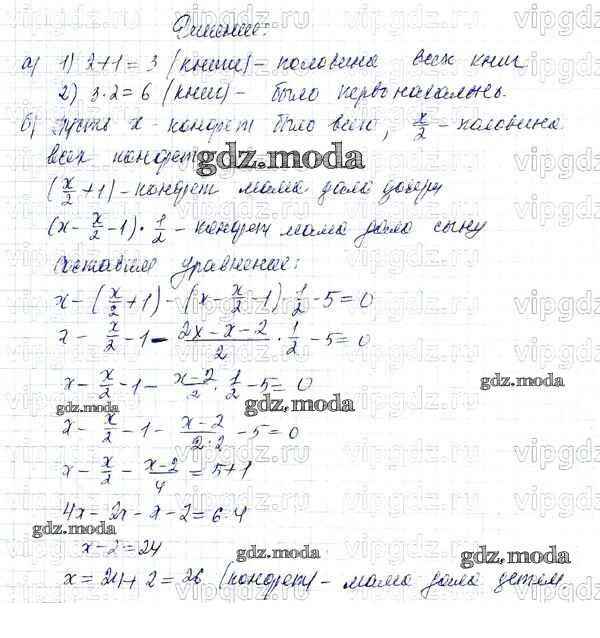 Решение:
а) 1) 2+1=3 (книги) – половина всех книг
2) 3·2=6 (книг) – было первоначально.
б) Пусть x – конфет было всего, x/2 – половина
всех конфет
gdz.moda
(x/2+1) – конфет мама дала дочери
(x-x/2-1)·1/2 – конфет мама дала сыну
Составим уравнение:
x-(x/2+1)-(x-x/2-1)1/2-5=0
x-x/2-1-(2x-x-2)/2·1/2-5=0
x-x/2-1-(x-2)/2·1/2-5=0
gdz.moda
gdz.moda
gdz.moda
x-x/2-1-(x-2)/(2·2)-5=0
x-x/2-(x-2)/4=5+1
4x-2x-x-2=6·4
gdz.moda
gdz.moda
x-2=24
gdz.moda
x=24+2=26 (конфет) – мама дала детям
vipgdz.ru